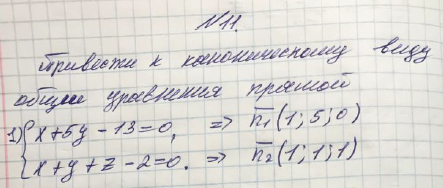 №11.
Привести к каноническому виду
общие уравнения прямой
1) { x + 5y - 13 = 0, => n̅₁ (1; 5; 0)
x + y + z - 2 = 0. => n̅₂ (1; 1; 1)